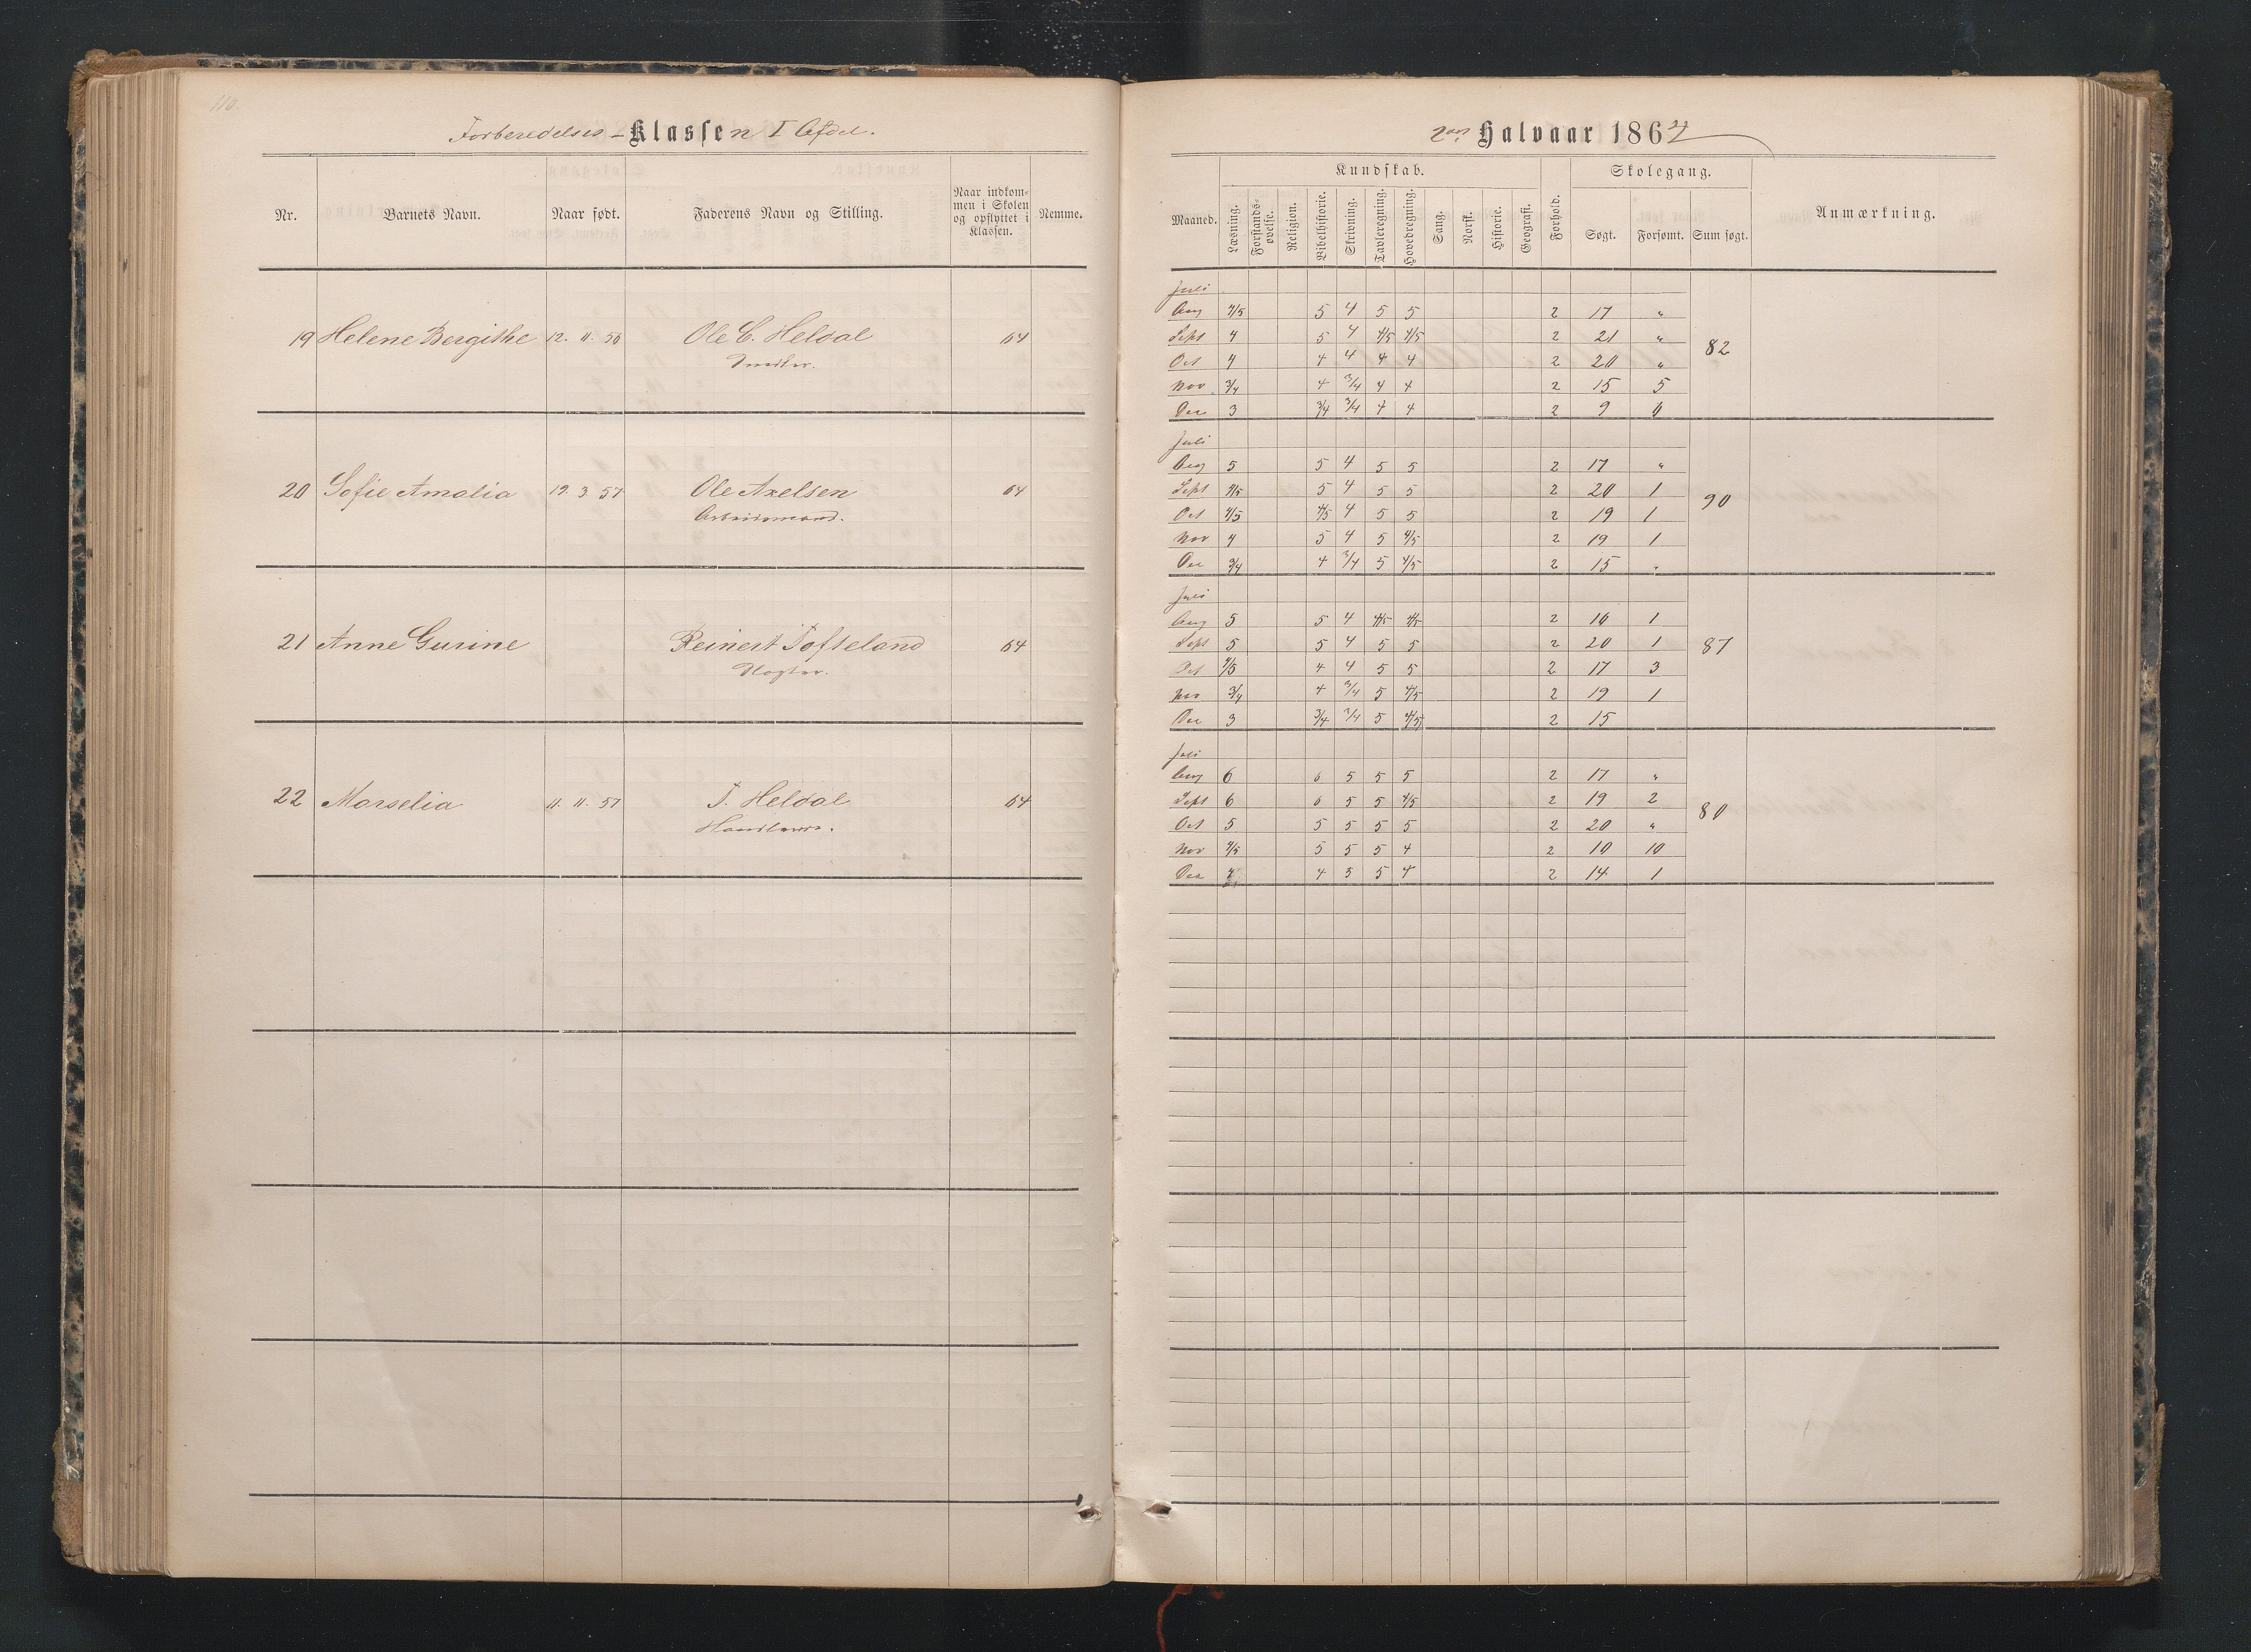 110.
Forberedelses-Klassen I Afdel.
Nr. Barnets Navn. Naar født. Faderens Navn og Stilling. Naar indkom-
men i Skolen
og opflyttet i
Klassen. Nemme.
19 Helene Bergithe 12. 11. 56 Ole C. Heldal 64
20 Sofie Amalia 19. 3. 57 Ole Axelsen 64
Arbeidsmand.
21 Anne Gurine Reinert Tofteland 64
22 Marselia 11. 11. 57 T. Heldal 64
2det Halvaar 1864
Kundskab. Skolegang.
Maaned. Læsning. Forstands-
øvelse. Religion. Bibelhistorie. Skrivning. Tavleregning. Hovedregning. Sang. Norsk. Historie. Geografi. Forhold. Søgt. Forsømt. Sum søgt. Anmærkning.
Juli
Aug 4/5 5 4 5 5 2 17 "
Sept 4 5 4 4/5 4/5 2 21 "
Oct 4 4 4 4 4 2 20 "
Nov 3/4 4 3/4 4 4 2 15 5
Dec 3 3/4 3/4 4 4 2 9 6
82
Juli
Aug 5 5 4 5 5 2 17 "
Sept 4/5 5 4 5 5 2 20 1
Oct 4/5 4/5 4 5 5 2 19 1
Nov 4 5 4 5 4/5 2 19 1
Dec 3/4 4 3/4 5 4/5 2 15 "
90
Juli
Aug 5 5 4 4/5 4/5 2 16 1
Sept 5 5 4 5 5 2 20 1
Oct 4/5 4 4 5 5 2 17 3
Nov 3/4 4 3/4 5 4/5 2 19 1
Dec 3 3/4 3/4 5 4/5 2 15
87
Juli
Aug 6 6 5 5 5 2 17 "
Sept 6 6 5 5 4/5 2 19 2
Oct 5 5 5 5 5 2 20 "
Nov 4/5 5 5 5 4 2 10 10
Dec 4 4 5 5 4 2 14 1
80